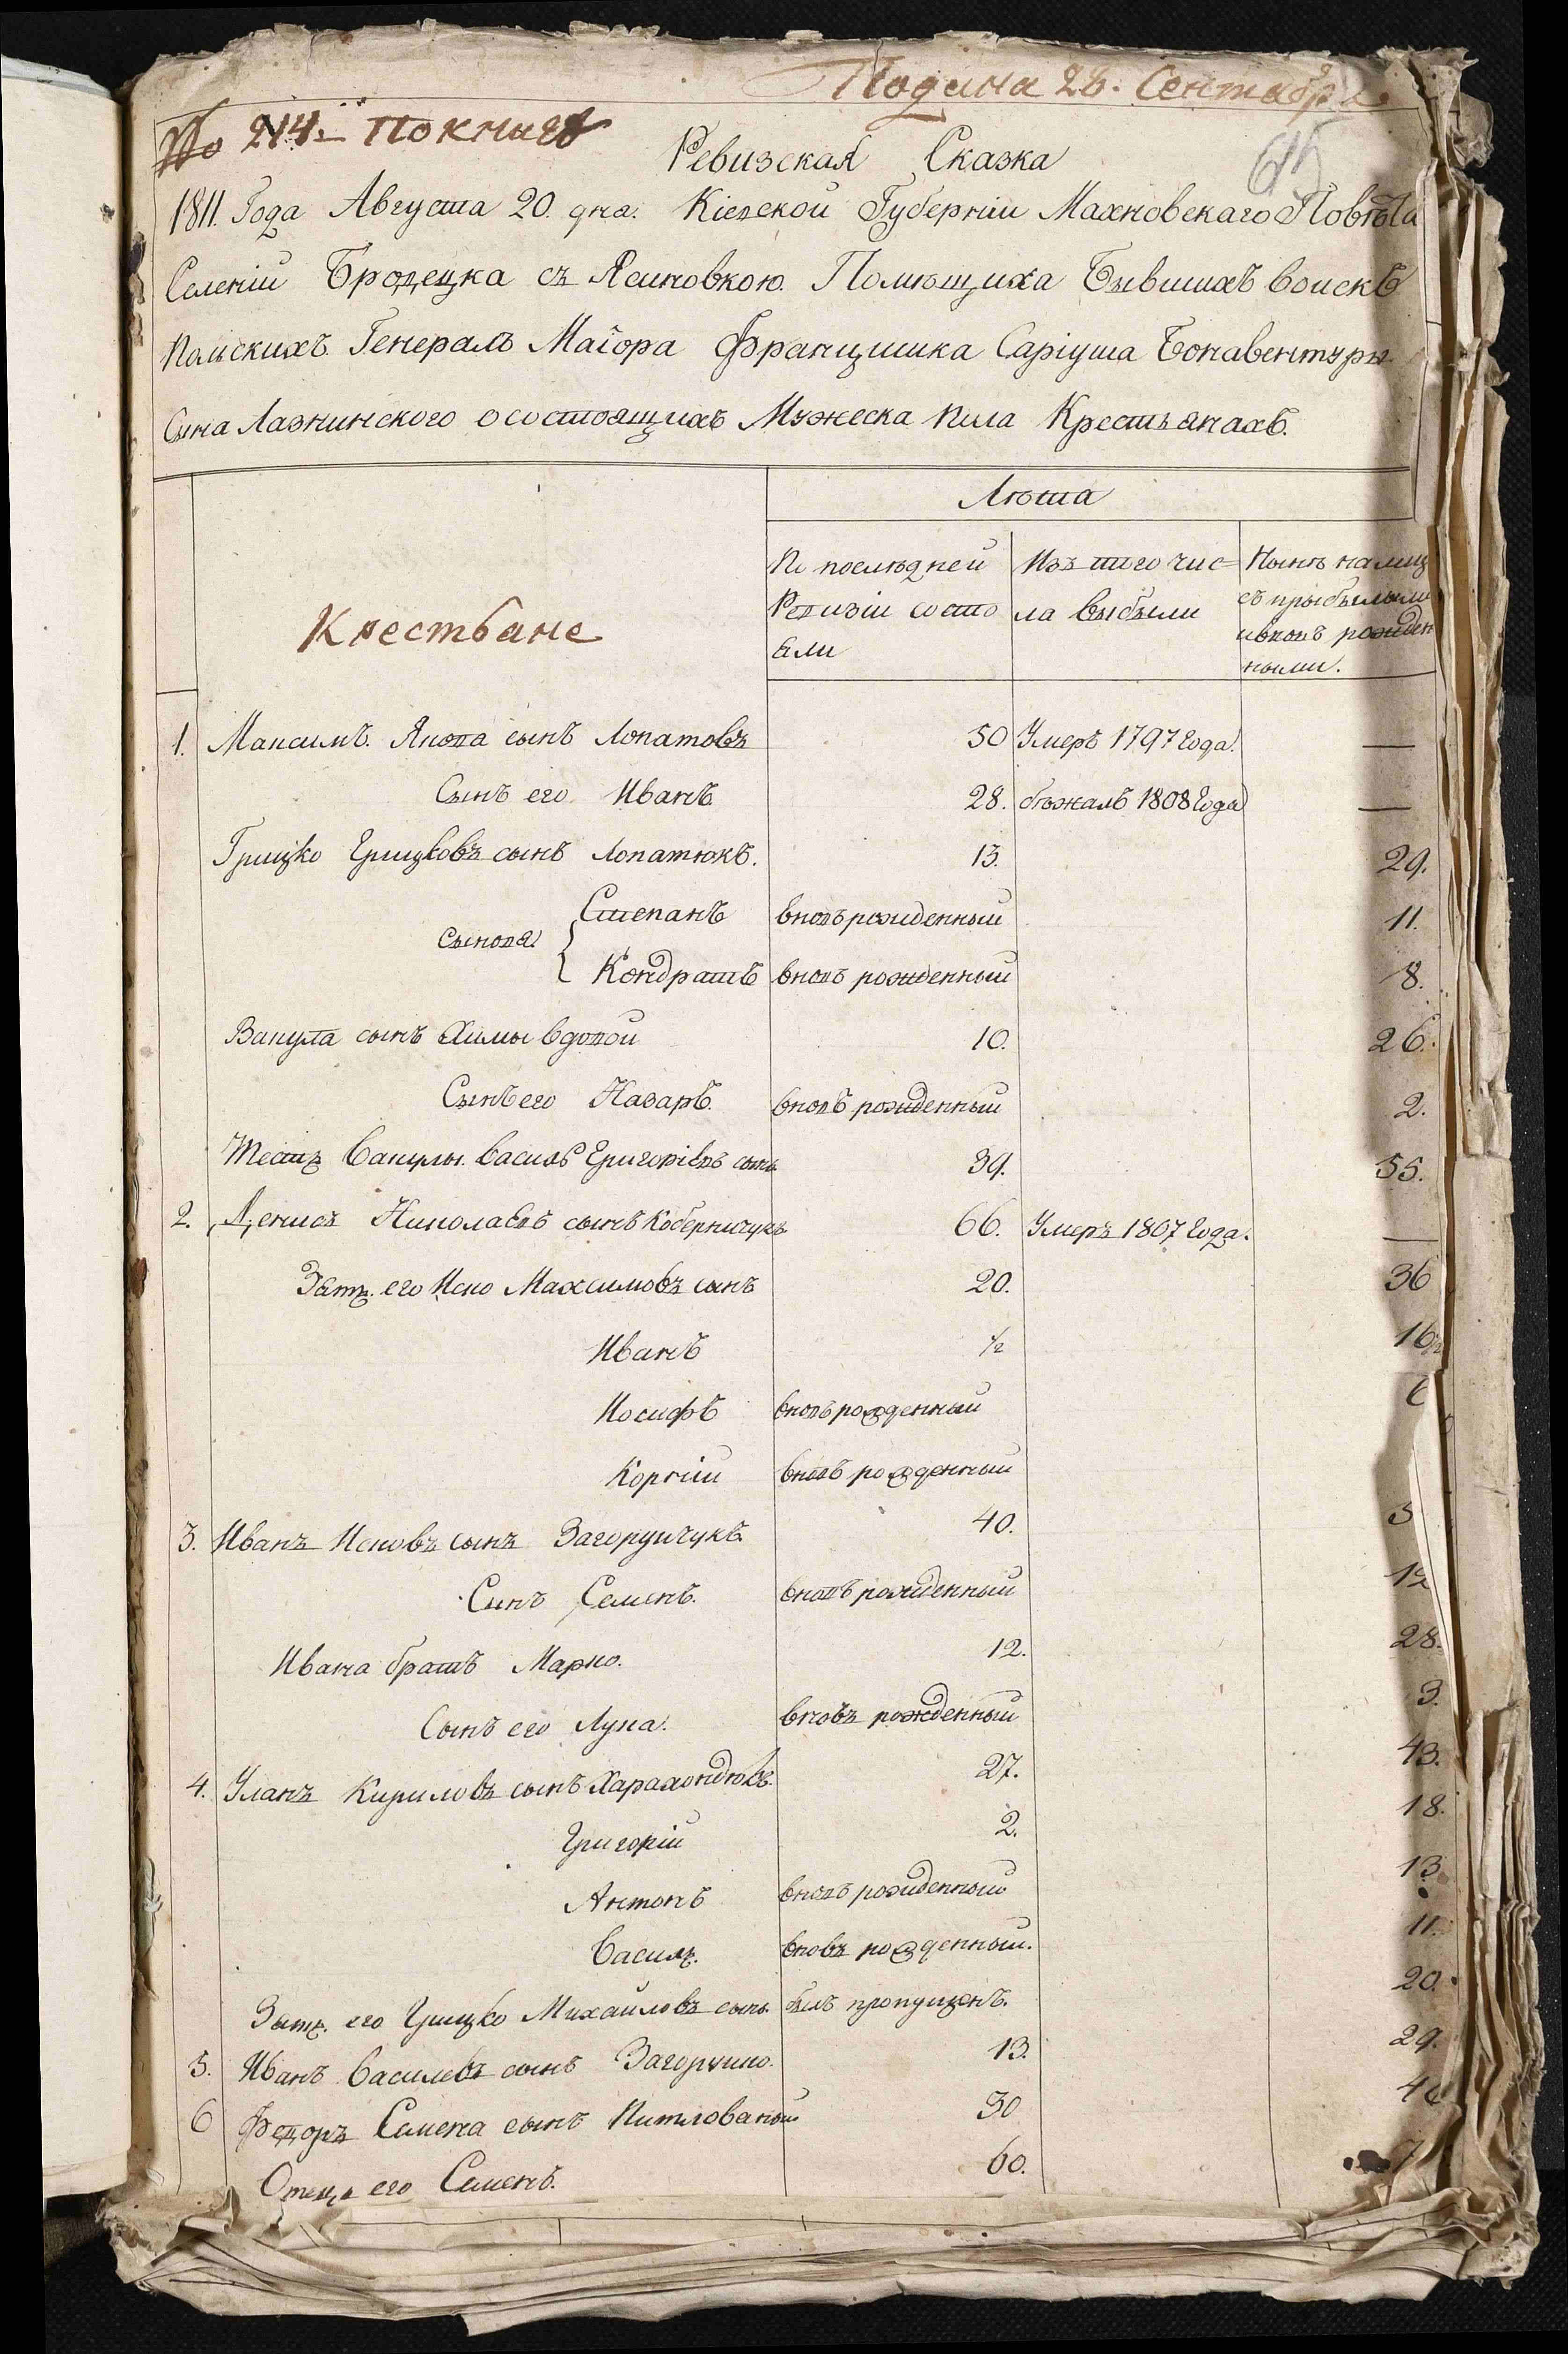 Подана 28. Сентября
№ 214. По книгѣ
615
Ревизская Сказка
1811. Года Августа 20. дня. Кіевской Губерніи Махновскаго Повѣта
Селеній Бродецка съ Ясиковкою. Помѣщика Бывшихъ воискъ
Польскихъ. Генералъ Маіора Францишка Саріуша Бонавентуры
Сына Лазнинского о состоящихъ Мужеска Пола Крестьянахъ.
Лѣта
Крестьяне
По послѣдней Ревизіи состояли
Изъ того числа выбыли
Нынѣ налицо съ прибылыми и вновь рожденными.
1. Максимъ. Якова сынъ Лопатовъ 50 Умеръ 1797 года. —
Сынъ его Иванъ 28. бѣжалъ 1808 года —
Грицко Грицковъ сынъ Лопатюкъ. 13. 29.
сыновя { Степанъ вновь рожденный 11.
Кондратъ вновь рожденный 8.
Вакула сынъ Химы вдовой 10. 26.
Сынъ его Назаръ. вновь рожденный 2.
Тесть Вакулы. Василь Григоріевъ сынъ 39. 55.
2. Денисъ Николаевъ сынъ Коберничукъ 66. Умеръ 1807 года. —
Зять. его Иско Максимовъ сынъ 20. 36
Иванъ ½ 16½
Иосифъ вновь рожденный
Корнii вновь рожденный
3. Иванъ Исковъ сынъ Загоруйчукъ 40.
Сынъ Семенъ. вновь рожденный 12
Ивана братъ Марко. 12. 28.
Сынъ его Лука. вновь рожденный 3.
4. Уланъ Кириловъ сынъ Харахондюкъ. 27. 43.
Григорій 2. 18.
Антонъ вновь рожденный 13
Василь. вновь рожденный. 11.
Зять. его Грицко Михаиловъ сынъ былъ пропущенъ. 20.
5. Иванъ Василевъ сынъ Загорчико. 13. 29.
6 Федоръ Семена сынъ Питлованый 30
Отецъ его Семенъ. 60.